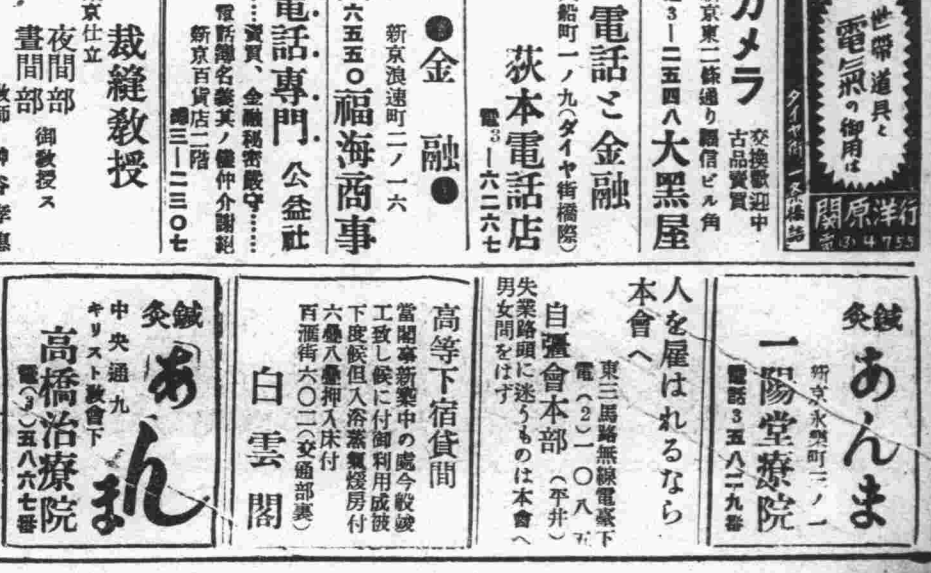 世帯道具と
電氣の御用は
關原洋行
(3)4755
ダイヤ街
カメラ
交換歡迎中
古品賣買
京東二條通り
角
3-2548大黒屋
電話と金融
船町一ノ九(ダイヤ街橋際)
荻本電話店
電3-6267
金融
新京浪速町二ノ一六
六五五〇福海商事
電話專門 公益社
賣買、金融秘密嚴守
電話簿名義其ノ儘仲介謝絶
新京百貨店二階
三-二三〇七
裁縫教授
京仕立
夜間部
晝間部
御教授ス
鍼灸
あんま
新京永樂町三ノ一
一陽堂療院
電話3五八二九番
人を雇はれるなら
本會へ
東三馬路無線電臺下
電(2)一〇八五
自彊會本部(平井)
失業路頭に迷うものは本會へ
男女問をはず
高等下宿貸間
當閣事新築中の處今般竣
工致し候に付御利用成被
下度候但入浴蒸氣煖房付
六疊八疊押入床付
百滙街六〇二(交通部裏)
白雲閣
鍼灸
あんま
中央通九
キリスト教會下
高橋治療院
電(3)五八六七番